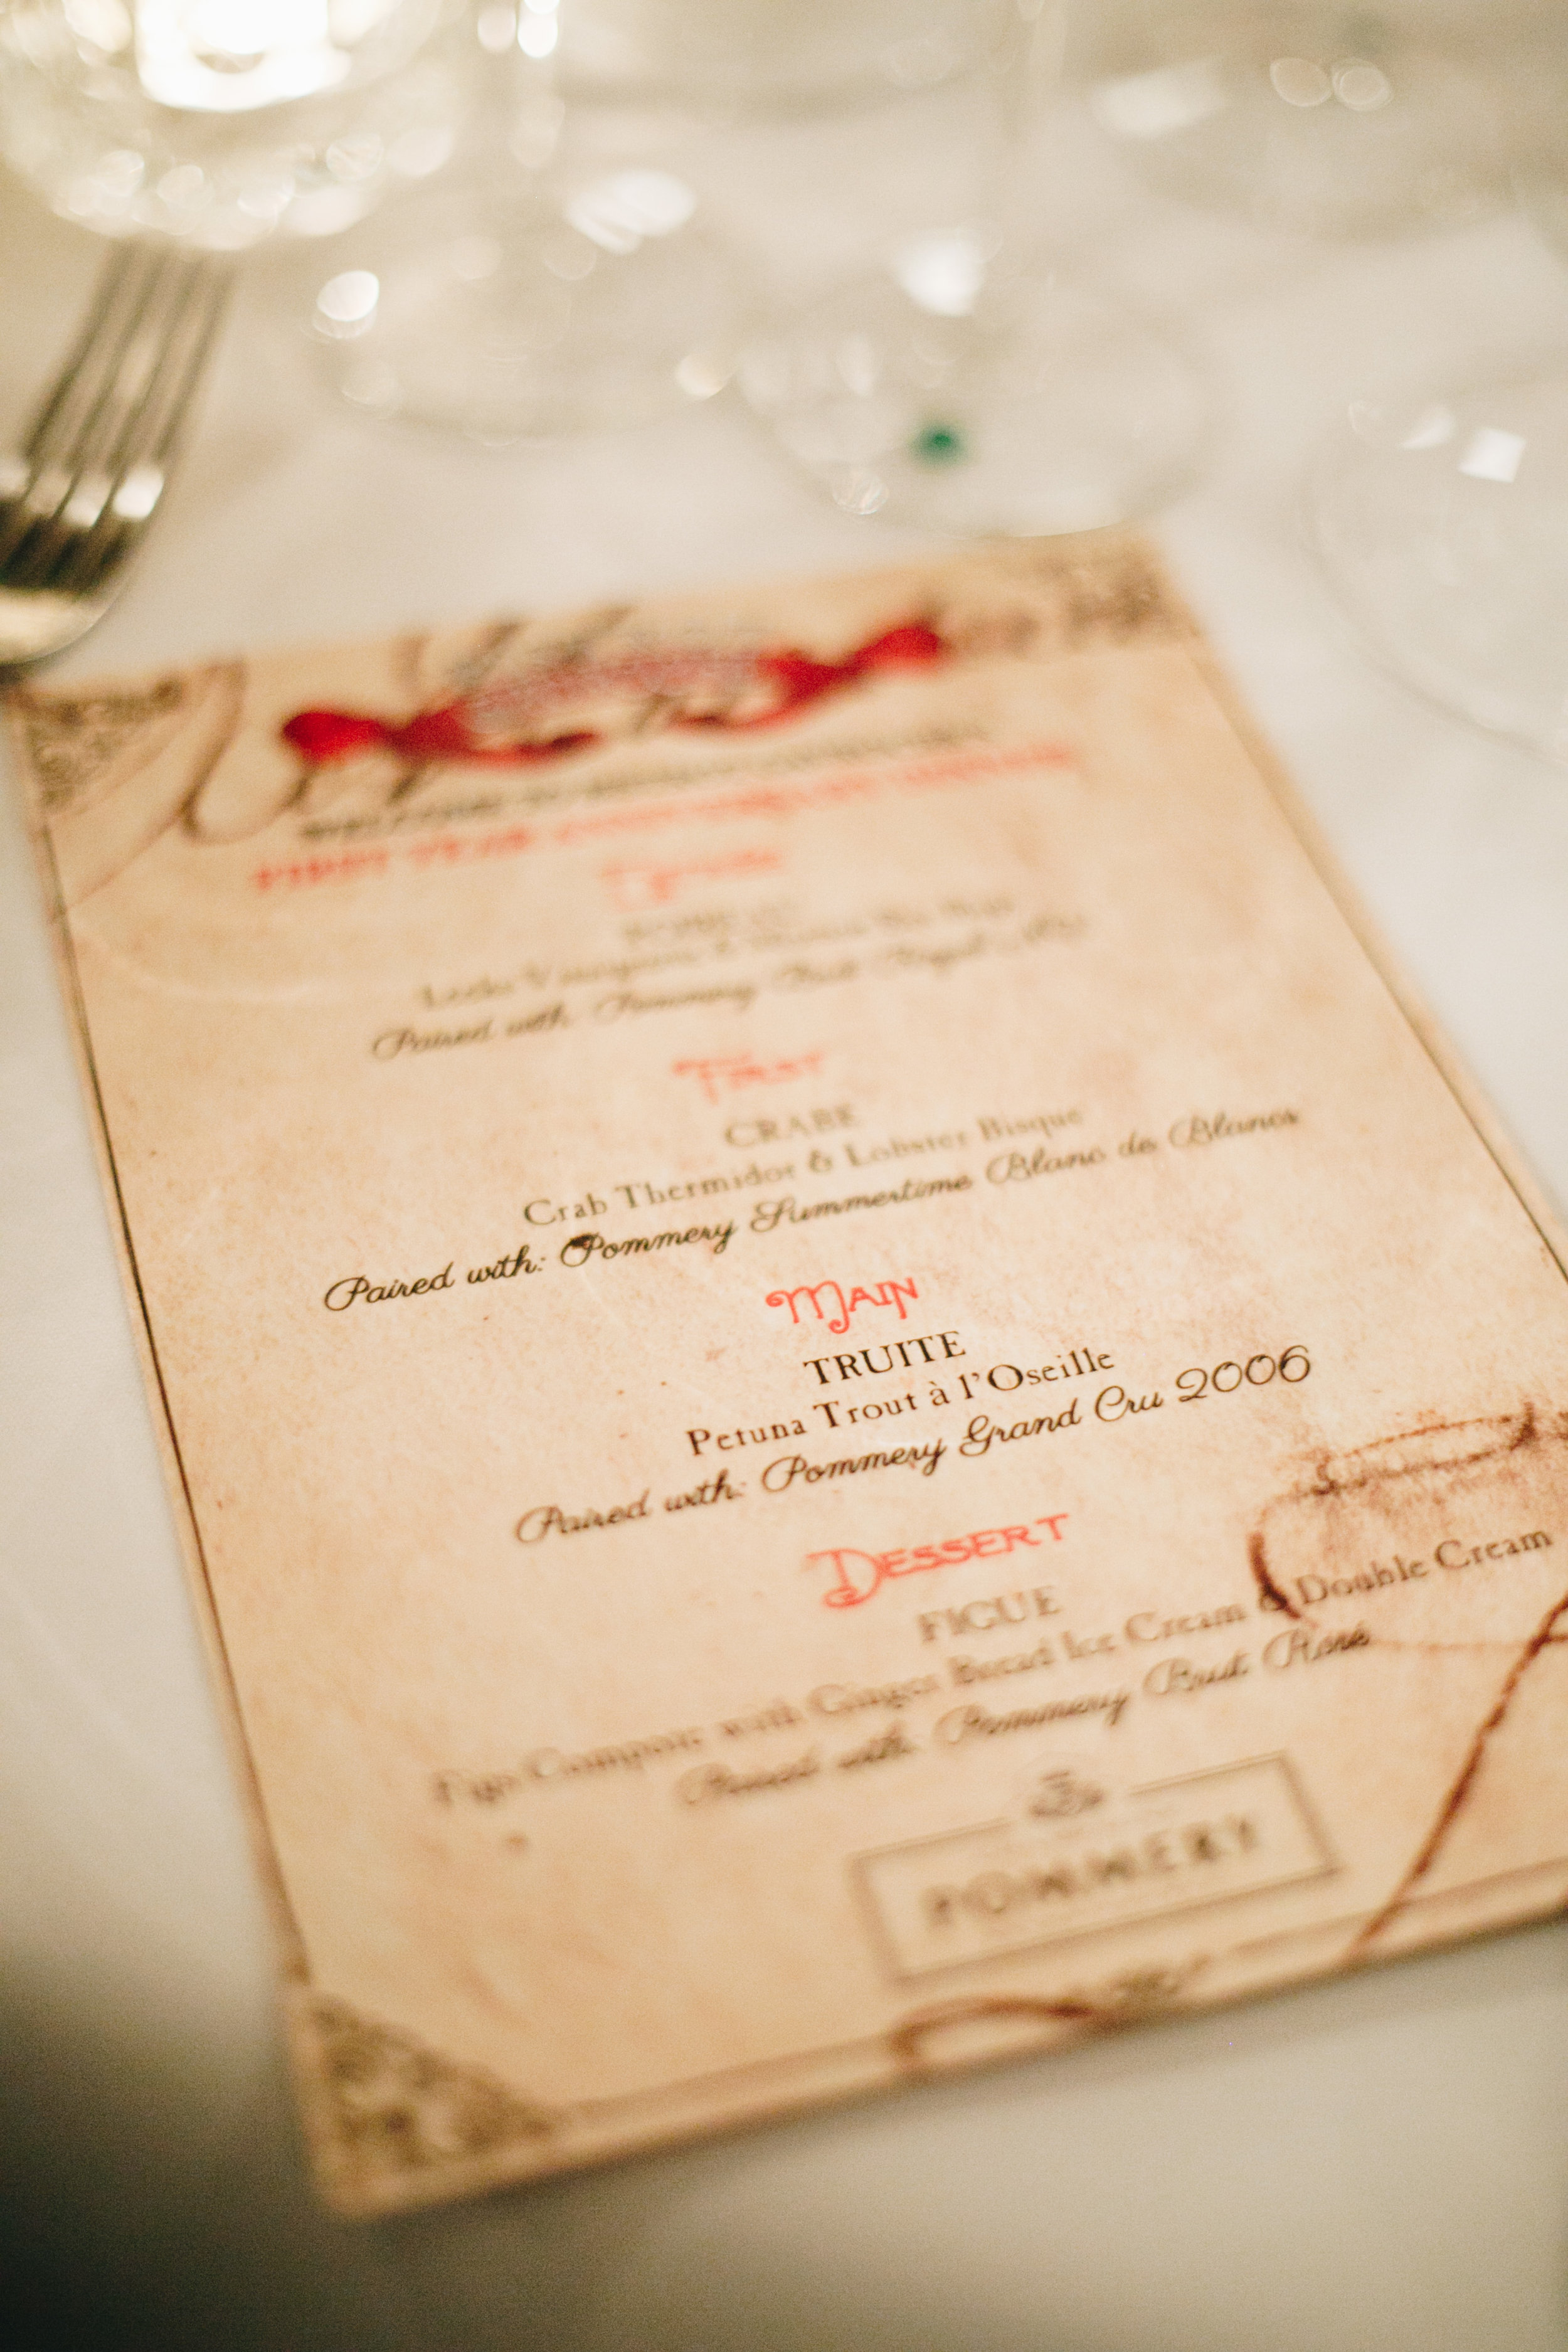 FIRST YEAR
Leeks Vinaigrette &
Paired with: Pommery Brut Royal
First
CRABE
Crab Thermidor & Lobster Bisque
Paired with: Pommery Summertime Blanc de Blancs
Main
TRUITE
Petuna Trout à l'Oseille
Paired with: Pommery Grand Cru 2006
Dessert
FIGUE
Figs Compote with Ginger Bread Ice Cream & Double Cream
Paired with: Pommery Brut Rosé
POMMERY